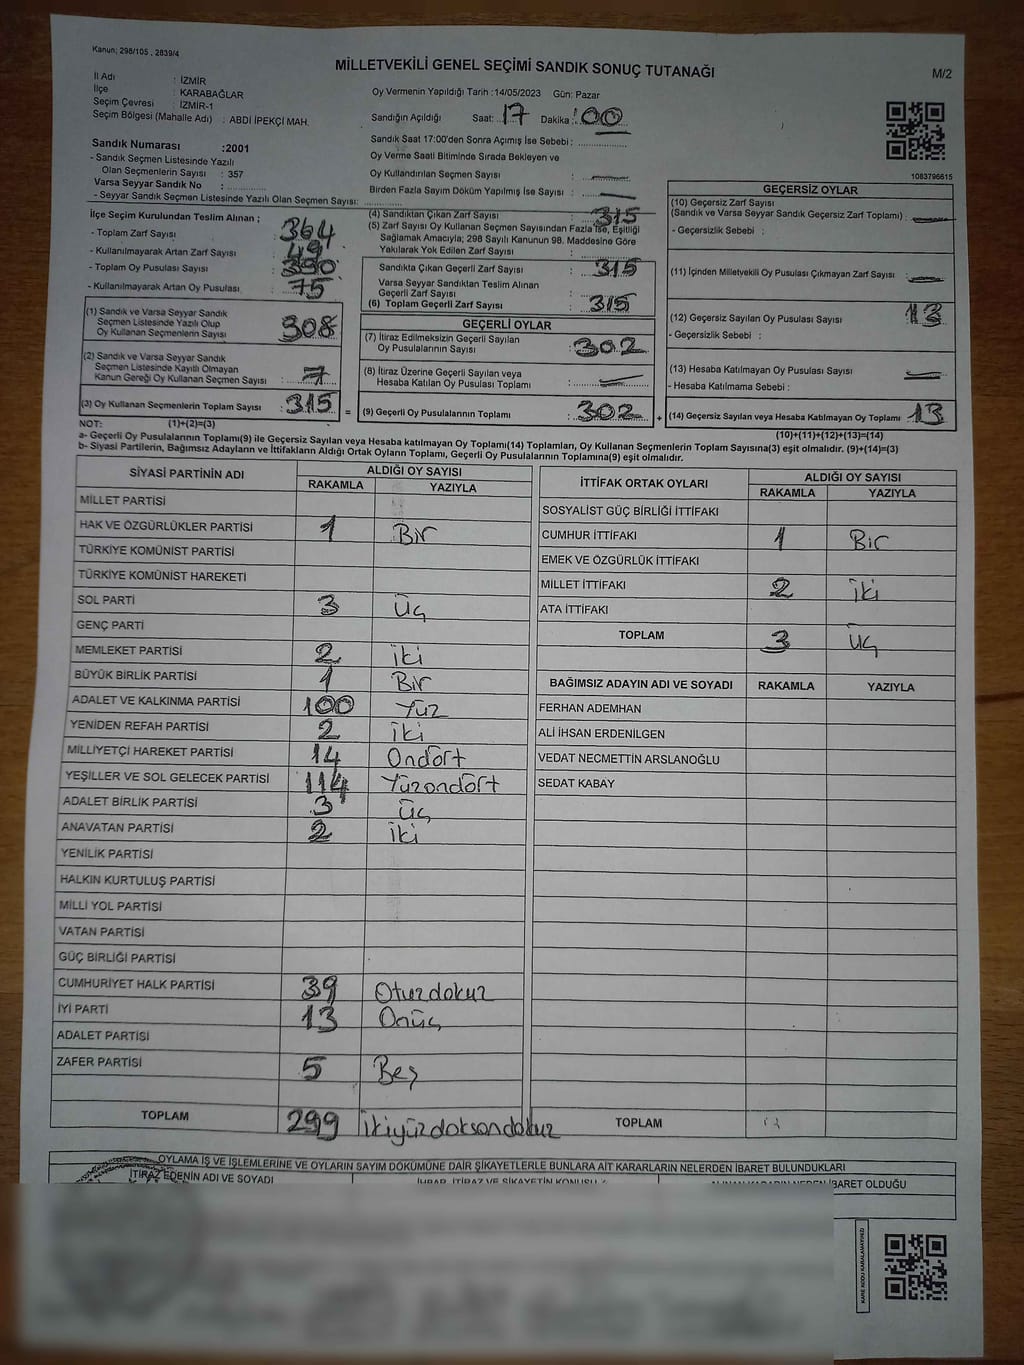 Kanun; 298/105 , 2839/4
MİLLETVEKİLİ GENEL SEÇİMİ SANDIK SONUÇ TUTANAĞI
M/2
İl Adı : İZMİR
İlçe : KARABAĞLAR
Seçim Çevresi : İZMİR-1
Seçim Bölgesi (Mahalle Adı) : ABDİ İPEKÇİ MAH.
Oy Vermenin Yapıldığı Tarih :14/05/2023 Gün: Pazar
Sandığın Açıldığı Saat: 17 Dakika : 00
Sandık Saat 17:00'den Sonra Açımış İse Sebebi :
Oy Verme Saati Bitiminde Sırada Bekleyen ve
Oy Kullandırılan Seçmen Sayısı :
Birden Fazla Sayım Döküm Yapılmış İse Sayısı :
Sandık Numarası :2001
- Sandık Seçmen Listesinde Yazılı
Olan Seçmenlerin Sayısı : 357
Varsa Seyyar Sandık No :
- Seyyar Sandık Seçmen Listesinde Yazılı Olan Seçmen Sayısı:
1083796615
İlçe Seçim Kurulundan Teslim Alınan ;
- Toplam Zarf Sayısı : 364
- Kullanılmayarak Artan Zarf Sayısı : 49
- Toplam Oy Pusulası Sayısı : 390
- Kullanılmayarak Artan Oy Pusulası : 75
(1) Sandık ve Varsa Seyyar Sandık
Seçmen Listesinde Yazılı Olup
Oy Kullanan Seçmenlerin Sayısı : 308
(2) Sandık ve Varsa Seyyar Sandık
Seçmen Listesinde Kayıtlı Olmayan
Kanun Gereği Oy Kullanan Seçmen Sayısı : 7
(3) Oy Kullanan Seçmenlerin Toplam Sayısı : 315
(4) Sandıktan Çıkan Zarf Sayısı : 315
(5) Zarf Sayısı Oy Kullanan Seçmen Sayısından Fazla İse, Eşitliği
Sağlamak Amacıyla; 298 Sayılı Kanunun 98. Maddesine Göre
Yakılarak Yok Edilen Zarf Sayısı :
Sandıkta Çıkan Geçerli Zarf Sayısı : 315
Varsa Seyyar Sandıktan Teslim Alınan
Geçerli Zarf Sayısı :
(6) Toplam Geçerli Zarf Sayısı : 315
GEÇERLİ OYLAR
(7) İtiraz Edilmeksizin Geçerli Sayılan
Oy Pusulalarının Sayısı : 302
(8) İtiraz Üzerine Geçerli Sayılan veya
Hesaba Katılan Oy Pusulası Toplamı :
= (9) Geçerli Oy Pusulalarının Toplamı : 302
GEÇERSİZ OYLAR
(10) Geçersiz Zarf Sayısı
(Sandık ve Varsa Seyyar Sandık Geçersiz Zarf Toplamı) :
- Geçersizlik Sebebi :
(11) İçinden Milletvekili Oy Pusulası Çıkmayan Zarf Sayısı :
(12) Geçersiz Sayılan Oy Pusulası Sayısı : 13
- Geçersizlik Sebebi :
(13) Hesaba Katılmayan Oy Pusulası Sayısı :
- Hesaba Katılmama Sebebi :
+ (14) Geçersiz Sayılan veya Hesaba Katılmayan Oy Toplamı : 13
NOT: (1)+(2)=(3)
(10)+(11)+(12)+(13)=(14)
a- Geçerli Oy Pusulalarının Toplamı(9) ile Geçersiz Sayılan veya Hesaba katılmayan Oy Toplamı(14) Toplamları, Oy Kullanan Seçmenlerin Toplam Sayısına(3) eşit olmalıdır. (9)+(14)=(3)
b- Siyasi Partilerin, Bağımsız Adayların ve İttifakların Aldığı Ortak Oyların Toplamı, Geçerli Oy Pusulalarının Toplamına(9) eşit olmalıdır.
SİYASİ PARTİNİN ADI ALDIĞI OY SAYISI
RAKAMLA YAZIYLA
MİLLET PARTİSİ
HAK VE ÖZGÜRLÜKLER PARTİSİ 1 Bir
TÜRKİYE KOMÜNİST PARTİSİ
TÜRKİYE KOMÜNİST HAREKETİ
SOL PARTİ 3 Üç
GENÇ PARTİ
MEMLEKET PARTİSİ 2 iki
BÜYÜK BİRLİK PARTİSİ 1 Bir
ADALET VE KALKINMA PARTİSİ 100 Yüz
YENİDEN REFAH PARTİSİ 2 iki
MİLLİYETÇİ HAREKET PARTİSİ 14 Ondört
YEŞİLLER VE SOL GELECEK PARTİSİ 114 Yüzondört
ADALET BİRLİK PARTİSİ 3 üç
ANAVATAN PARTİSİ 2 iki
YENİLİK PARTİSİ
HALKIN KURTULUŞ PARTİSİ
MİLLİ YOL PARTİSİ
VATAN PARTİSİ
GÜÇ BİRLİĞİ PARTİSİ
CUMHURİYET HALK PARTİSİ 39 Otuzdokuz
İYİ PARTİ 13 Onüç
ADALET PARTİSİ
ZAFER PARTİSİ 5 Beş
TOPLAM 299 ikiyüzdoksandokuz
İTTİFAK ORTAK OYLARI ALDIĞI OY SAYISI
RAKAMLA YAZIYLA
SOSYALİST GÜÇ BİRLİĞİ İTTİFAKI
CUMHUR İTTİFAKI 1 Bir
EMEK VE ÖZGÜRLÜK İTTİFAKI
MİLLET İTTİFAKI 2 iki
ATA İTTİFAKI
TOPLAM 3 üç
BAĞIMSIZ ADAYIN ADI VE SOYADI RAKAMLA YAZIYLA
FERHAN ADEMHAN
ALİ İHSAN ERDENİLGEN
VEDAT NECMETTİN ARSLANOĞLU
SEDAT KABAY
TOPLAM
OYLAMA İŞ VE İŞLEMLERİNE VE OYLARIN SAYIM DÖKÜMÜNE DAİR ŞİKAYETLERLE BUNLARA AİT KARARLARIN NELERDEN İBARET BULUNDUKLARI
İTİRAZ EDENİN ADI VE SOYADI
İHBAR, İTİRAZ VE ŞİKAYETİN KONUSU
ALINAN KARARIN NEDEN İBARET OLDUĞU
KARE KODU KARALAMAYINIZ